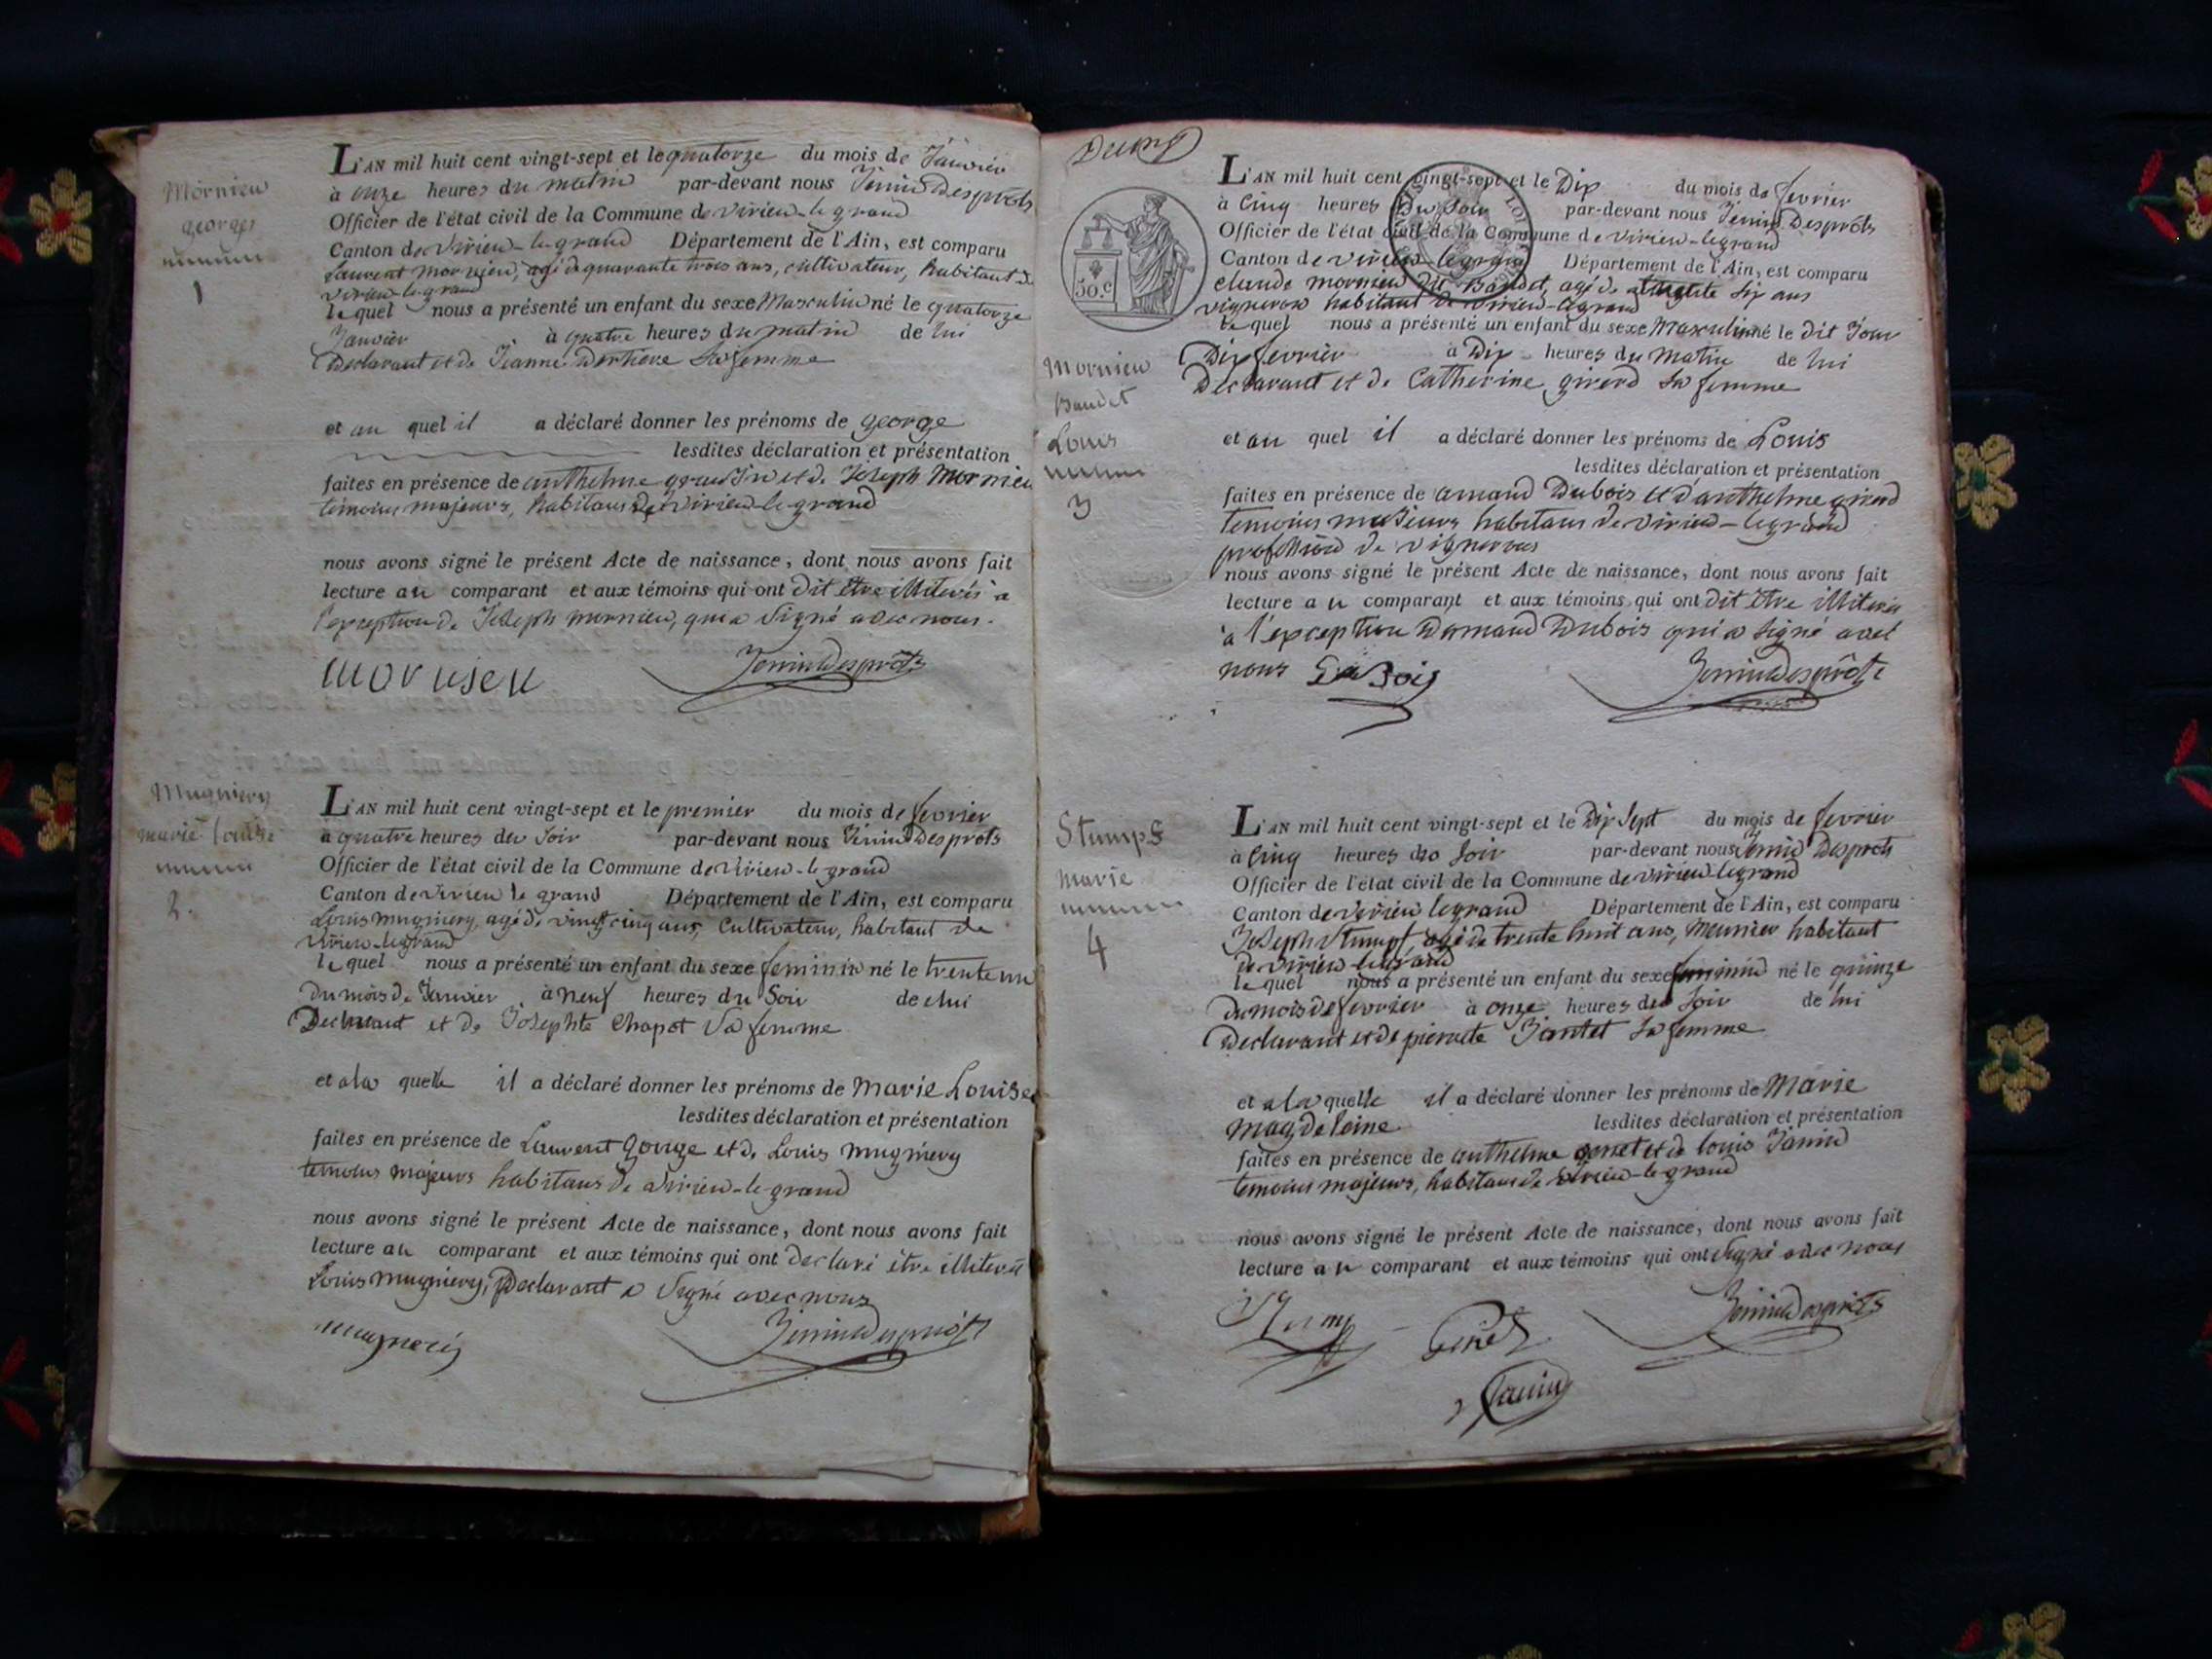 Mornieu
georges
1
L'AN mil huit cent vingt-sept et le quatorze du mois de Janvier
à onze heures du matin par-devant nous Jenin Desprôts
Officier de l'état civil de la Commune de Virieu-le-grand
Canton de Virieu-le-grand Département de l'Ain, est comparu
Laurent mornieu, agé de quarante trois ans, cultivateur, habitant de
virieu-le-grand
lequel nous a présenté un enfant du sexe Masculin né le quatorze
Janvier à quatre heures du matin de lui
Declarant et de Jeanne sa femme
et au quel il a déclaré donner les prénoms de george
lesdites déclaration et présentation
faites en présence de anthelme et de Joseph Mornieu
témoins majeurs, habitans de Virieu-le-grand
nous avons signé le présent Acte de naissance, dont nous avons fait
lecture au comparant et aux témoins qui ont dit être illiterés à
l'exception de Joseph mornieu, qui a signé avec nous.
mornieu Jenin Desprôts
Mugniery
marie louise
2.
L'AN mil huit cent vingt-sept et le premier du mois de fevrier
à quatre heures du soir par-devant nous Jenin Desprôts
Officier de l'état civil de la Commune de Virieu-le grand
Canton de Virieu le grand Département de l'Ain, est comparu
Louis mugniery, agé de vingt cinq ans, Cultivateur, habitant de
virieu-legrand
lequel nous a présenté un enfant du sexe feminin né le trente un
du mois de Janvier à neuf heures du Soir de lui
Declarant et de Josephte Chapot sa femme
et a la quelle il a déclaré donner les prénoms de Marie Louise
lesdites déclaration et présentation
faites en présence de Laurent Gouge et de Louis mugniery
temoins majeurs habitans de virieu-le-grand
nous avons signé le présent Acte de naissance, dont nous avons fait
lecture au comparant et aux témoins qui ont declaré être illiterés
Louis mugniery, Declarant a signé avec nous
Jenin Desprôts
50.c
Mornieu
Baudet
Louis
3
L'AN mil huit cent vingt-sept et le Dix du mois de fevrier
à Cinq heures du soir par-devant nous Jenin Desprôts
Officier de l'état civil de la Commune de virieu-legrand
Canton de virieu-legrand Département de l'Ain, est comparu
claude mornieu dit Baudet, agé de six ans
vigneron habitant de virieu-legrand
lequel nous a présenté un enfant du sexe Masculin né le dit Jour
Dix fevrier à Dix heures du Matin de lui
Declarant et de Catherine girerd sa femme
et au quel il a déclaré donner les prénoms de Louis
lesdites déclaration et présentation
faites en présence de amand Dubois et d'anthelme girerd
temoins majeurs habitans de virieu-legrand
profession de vignerons
nous avons signé le présent Acte de naissance, dont nous avons fait
lecture au comparant et aux témoins qui ont dit être illiterés
à l'exception Damand Dubois qui a signé avec
nous DuBois Jenin Desprôts
Stumps
marie
4
L'AN mil huit cent vingt-sept et le Dix Sept du mois de fevrier
à Cinq heures du soir par-devant nous Jenin Desprôts
Officier de l'état civil de la Commune de virieu-legrand
Canton de virieu legrand Département de l'Ain, est comparu
Joseph Stumpf, agé de trente huit ans, Meunier habitant
de virieu-legrand
lequel nous a présenté un enfant du sexe feminin né le quinze
du mois de fevrier à onze heures du soir de lui
Declarant et de pierrette Jantet sa femme
et a la quelle il a déclaré donner les prénoms de Marie
magdeleine lesdites déclaration et présentation
faites en présence de anthelme genet et de louis Janin
temoins majeurs, habitans de virieu-le-grand
nous avons signé le présent Acte de naissance, dont nous avons fait
lecture au comparant et aux témoins qui ont signé avec nous
Genet Jenin Desprôts
Janin